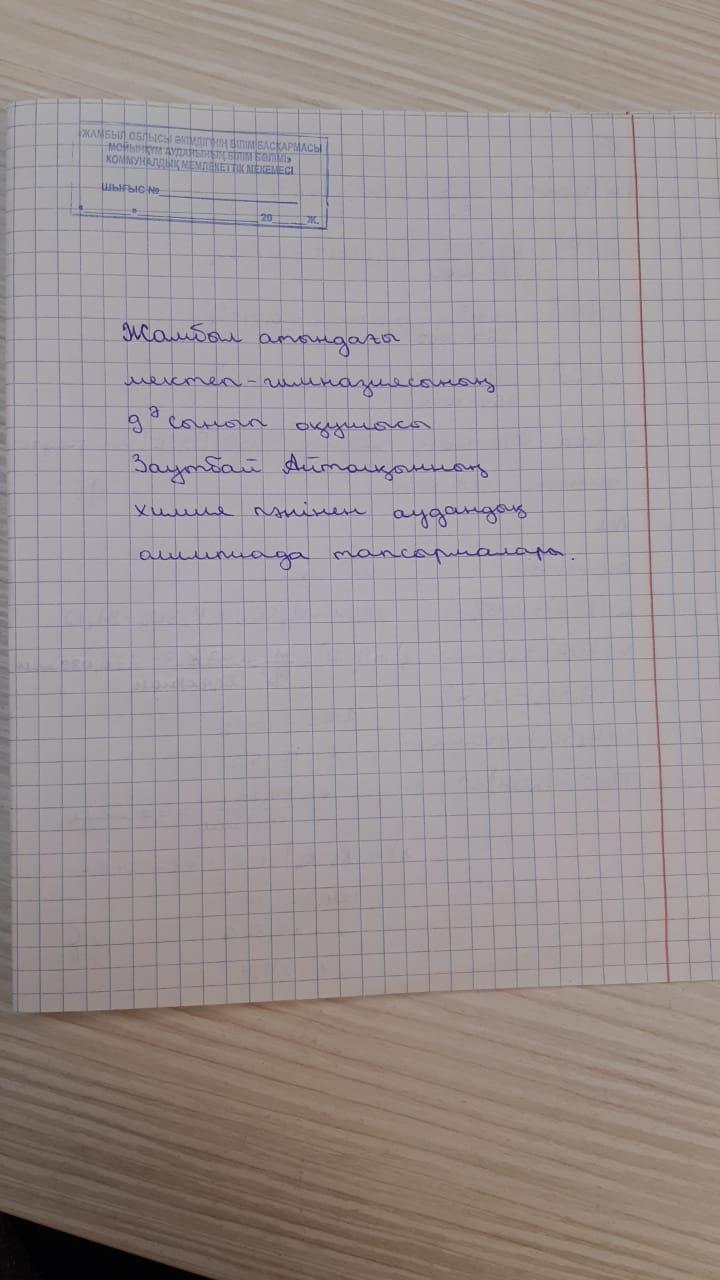 «ЖАМБЫЛ ОБЛЫСЫ ӘКІМДІГІНІҢ БІЛІМ БАСҚАРМАСЫ
МОЙЫНҚҰМ АУДАНЫНЫҢ БІЛІМ БӨЛІМІ»
КОММУНАЛДЫҚ МЕМЛЕКЕТТІК МЕКЕМЕСІ
ШЫҒЫС №
«____»____________20____Ж.
Жамбыл атындағы
мектеп-гимназиясының
9 ә сынып оқушысы
Заутбай Айтолқынның
химия пәнінен аудандық
олимпиада тапсырмалары.